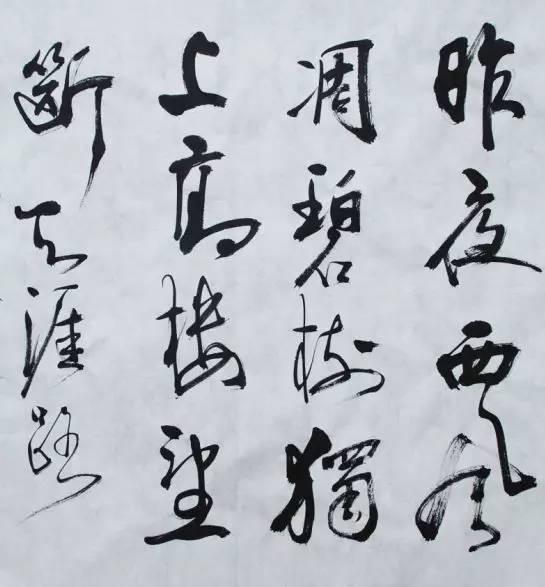 昨夜西風
凋碧樹獨
上高樓望
斷天涯路